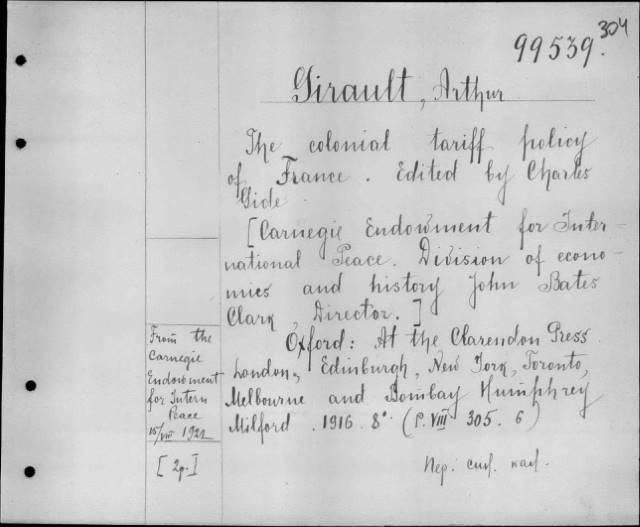 304
99539.
Girault, Arthur
The colonial tariff policy
of France. Edited by Charles
Gide
[Carnegie Endowment for Inter-
national Peace. Division of econo-
mics and history John Bates
Clark, Director.]
Oxford: At the Clarendon Press
London, Edinburgh, New York, Toronto,
Melbourne and Bombay Humphrey
Milford. 1916. 8°. (P. VIII 305. 6)
From the
Carnegie
Endowment
for Intern
Peace
15/VIII 1922
[2p.]